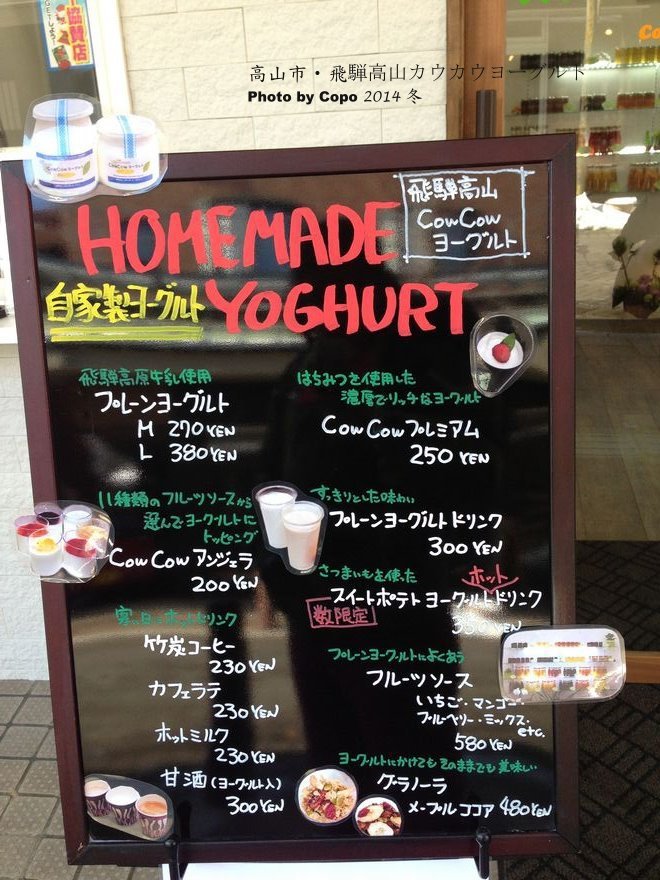 高山市・飛騨高山カウカウヨーグルト
Photo by Copo 2014 冬
飛騨高山
CowCow
ヨーグルト
HOMEMADE
自家製ヨーグルト YOGHURT
飛騨高原牛乳使用
プレーンヨーグルト
M 270YEN
L 380YEN
はちみつを使用した
濃厚でリッチなヨーグルト
CowCowプレミアム
250 YEN
11種類のフルーツソースから
選んでヨーグルトに
トッピング
CowCow アンジェラ
200 YEN
すっきりとした味わい
プレーンヨーグルトドリンク
300 YEN
さつまいもを使った
ホット
スイートポテト ヨーグルトドリンク
数限定
YEN
寒い日にホットドリンク
竹炭コーヒー
230 YEN
カフェラテ
230 YEN
ホットミルク
230 YEN
甘酒(ヨーグルト入)
300 YEN
プレーンヨーグルトによくあう
フルーツソース
いちご・マンゴー・
ブルーベリー・ミックス・
etc.
580 YEN
ヨーグルトにかけても そのままでも 美味しい
グラノーラ
メープル ココア 480YEN